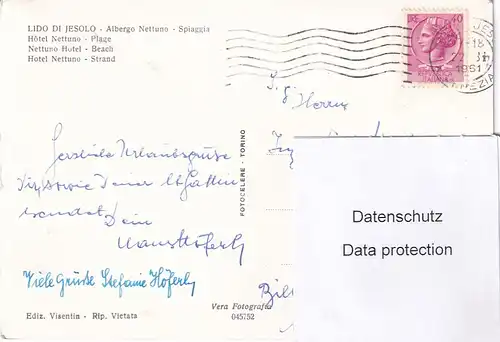 LIDO DI JESOLO - Albergo Nettuno - Spiaggia
Hôtel Nettuno - Plage
Nettuno Hotel - Beach
Hotel Nettuno - Strand
LIRE 40
18
1961
VENEZIA
S. d. Herrn
Herzliche Urlaubsgrüße
Dir sowie Deiner lb Gattin
sendet Dein
Viele Grüße Stefanie Höferly
FOTOCELERE - TORINO
Vera Fotografia
045752
Ediz. Visentin - Rip. Vietata
Datenschutz
Data protection